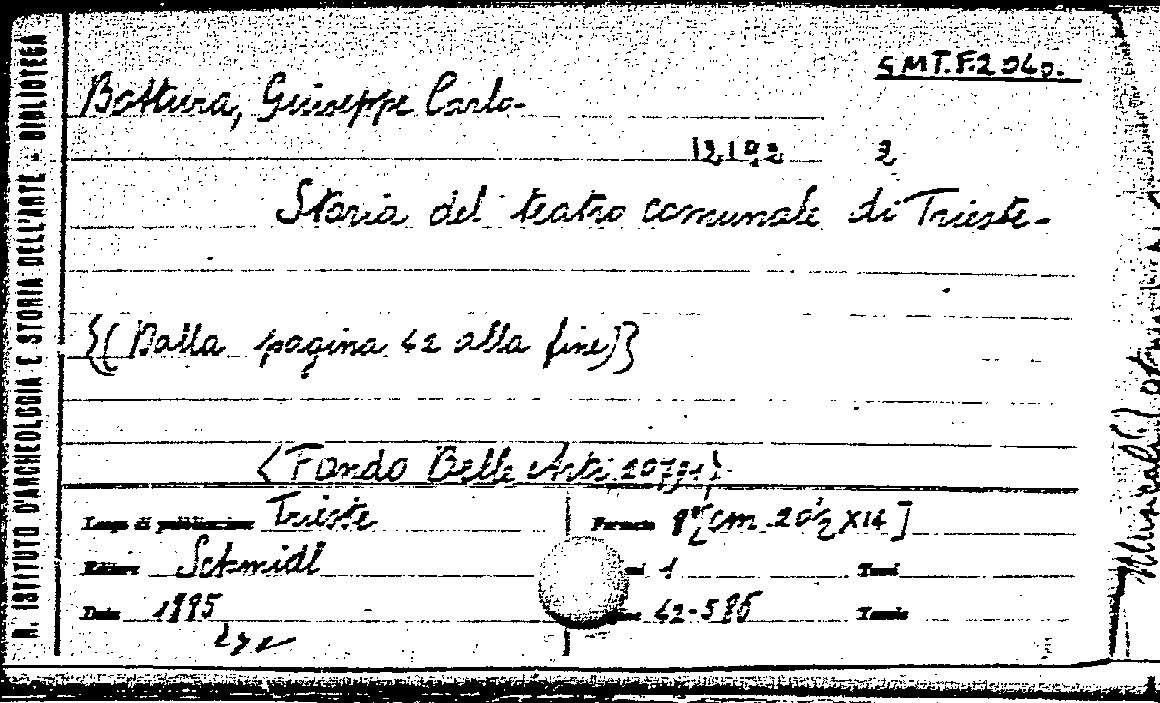 R. ISTITUTO D'ARCHEOLOGIA E STORIA DELL'ARTE - BIBLIOTECA
SMT.F.2040.
Bottura, Giuseppe Carlo-
12192 2
Storia del teatro comunale di Trieste-
{(Dalla pagina 42 alla fine)}
(Fondo Belle Arti 
Luogo di pubblicazione Trieste
Formato 8° [cm 20½ X14]
Editore Schmidl
1
Tomi
Data 1885
42-586
Tavole